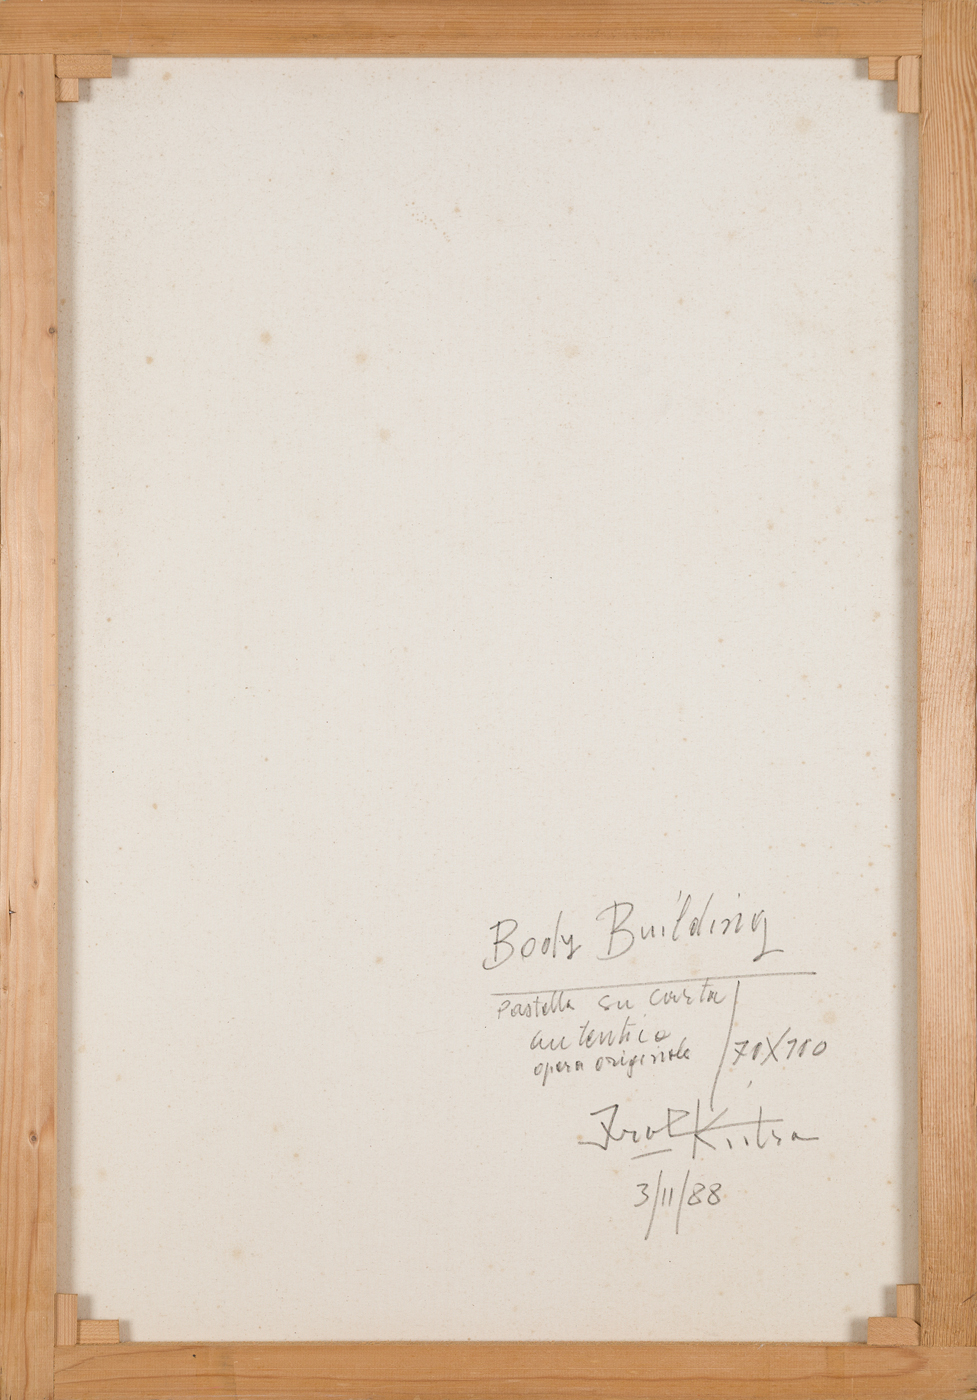 Body Building
Pastello su carta
autentico
opera originale
70X100
3/11/88